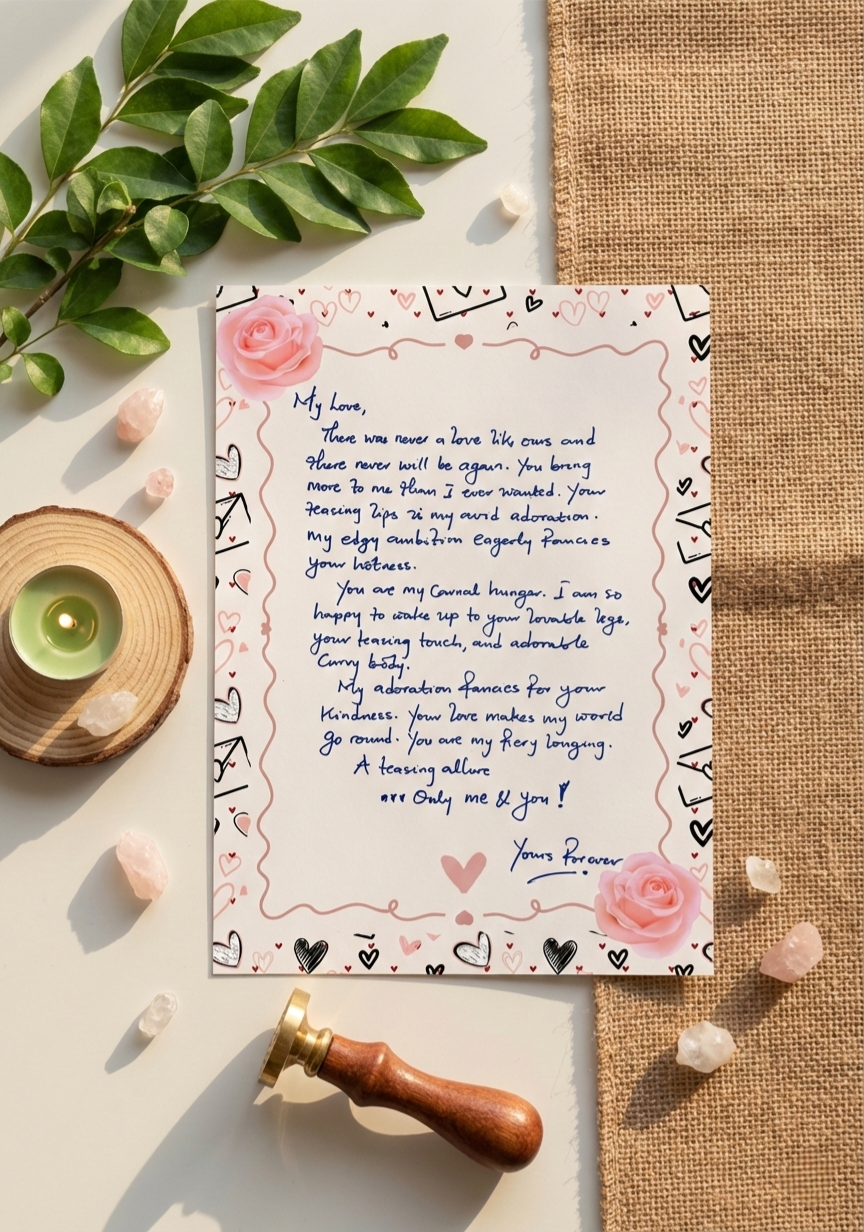 My Love,
There was never a love like ours and
there never will be again. You bring
more to me than I ever wanted. Your
teasing lips is my avid adoration.
My edgy ambition eagerly fancies
your hotness.
You are my Carnal hunger. I am so
happy to wake up to your lovable legs,
your teasing touch, and adorable
Curvy body.
My adoration fancies for your
Kindness. Your love makes my world
go round. You are my fiery longing.
A teasing allure
... Only me & you !
Yours Forever